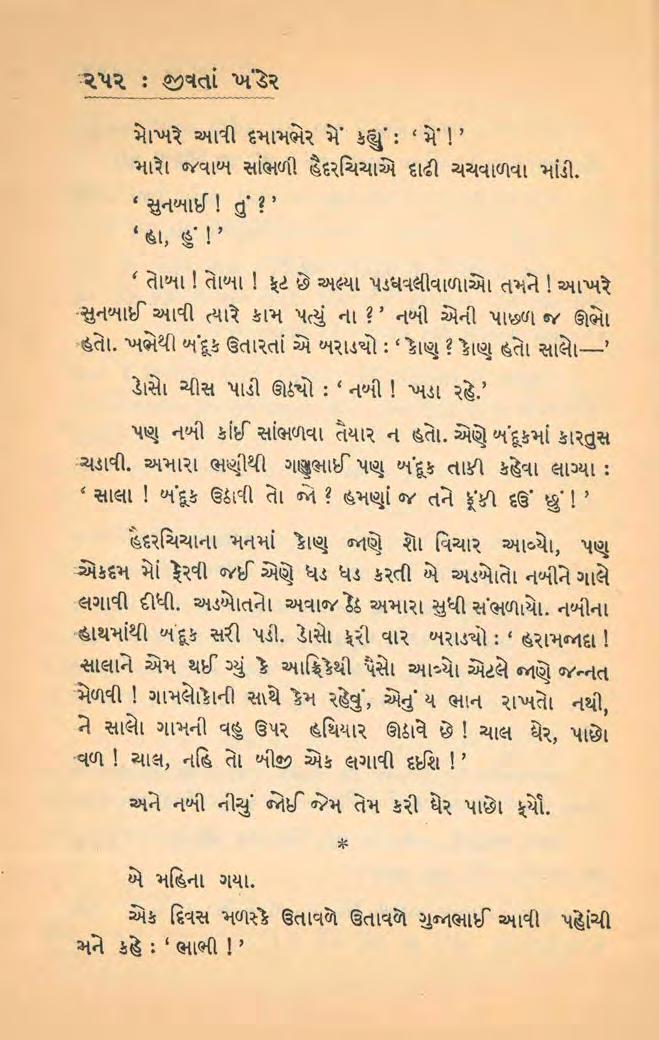 ૨૫૨ : જીવતાં ખંડેર
મોખરે આવી દમામભેર મેં કહ્યું : ‘ મેં ! ’
મારો જવાબ સાંભળી હૈદરચિચાએ દાઢી ચચવાળવા માંડી.
‘ સુનબાઈ ! તું ? ’
‘ હા, હું ! ’
‘ તોબા ! તોબા ! ફટ છે અલ્યા પડધવલીવાળાઓ તમને ! આખરે
સુનબાઈ આવી ત્યારે કામ પત્યું ના ? ’ નબી એની પાછળ જ ઊભો
હતો. ખભેથી બંદૂક ઉતારતાં એ બરાડયો : ‘ કોણ ? કોણ હતો સાલો— ’
ડોસો ચીસ પાડી ઊઠયો : ‘ નબી ! ખડા રહે. ’
પણ નબી કાંઈ સાંભળવા તૈયાર ન હતો. એણે બંદૂકમાં કારતુસ
ચડાવી. અમારા ભણીથી ગણુભાઈ પણ બંદૂક તાકી કહેવા લાગ્યા :
‘ સાલા ! બંદૂક ઉઠાવી તો જો ? હમણાં જ તને ફૂંકી દઉં છું ! ’
હૈદરચિચાના મનમાં કોણ જાણે શો વિચાર આવ્યો, પણ
એકદમ મોં ફેરવી જઈ એણે ધડ ધડ કરતી બે અડબોતો નબીને ગાલે
લગાવી દીધી. અડબોતનો અવાજ ઠેઠ અમારા સુધી સંભળાયો. નબીના
હાથમાંથી બંદૂક સરી પડી. ડોસો ફરી વાર બરાડયો : ‘ હરામજાદા !
સાલાને એમ થઈ ગ્યું કે આફ્રિકેથી પૈસો આવ્યો એટલે જાણે જન્નત
મેળવી ! ગામલોકોની સાથે કેમ રહેવું, એનું ય ભાન રાખતો નથી,
ને સાલો ગામની વહુ ઉપર હથિયાર ઊઠાવે છે ! ચાલ ઘેર, પાછો
વળ ! ચાલ, નહિ તો બીજી એક લગાવી દઈશ ! ’
અને નબી નીચું જોઈ જેમ તેમ કરી ઘેર પાછો ફર્યો.
*
બે મહિના ગયા.
એક દિવસ મળસ્કે ઉતાવળે ઉતાવળે ગુજાભાઈ આવી પહોંચી
મને કહે : ‘ ભાભી ! ’